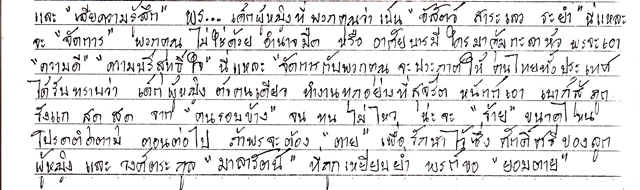 และ "เสียความรู้สึก" พร... เด็กผู้หญิงที่พวกคุณว่าเป็น "อีสัตว์ สาระเลว ระยำ" นี่แหละ
จะ "จัดการ" พวกคุณ ไม่ใช่ด้วย อำนาจมืด หรือ อาศัยบารมีใครมาคุ้มกะลาหัว พรจะเอา
"ความดี" "ความบริสุทธิ์ใจ" นี่แหละ "จัดการกับพวกคุณ จะประกาศให้ คนไทยทั้งประเทศ
ได้รับทราบว่า เด็กผู้หญิง ตัวคนเดียว ทำงานทุกอย่างที่สุจริต หนักเอา เบาก็สู้ ถูก
รังแก สุด สุด จาก "คนรอบข้าง" จน ทน ไม่ไหว น่ะจะ "ร้าย" ขนาดไหน
โปรดติดตาม ตอนต่อไป ถ้าพรจะต้อง "ตาย" เพื่อรักษาไว้ซึ่ง ศักดิ์ศรีของลูก
ผู้หญิง และ วงศ์ตระกูล "มาลารัตน์" ที่ถูกเหยียบย่ำ พรก็ขอ "ยอมตาย"